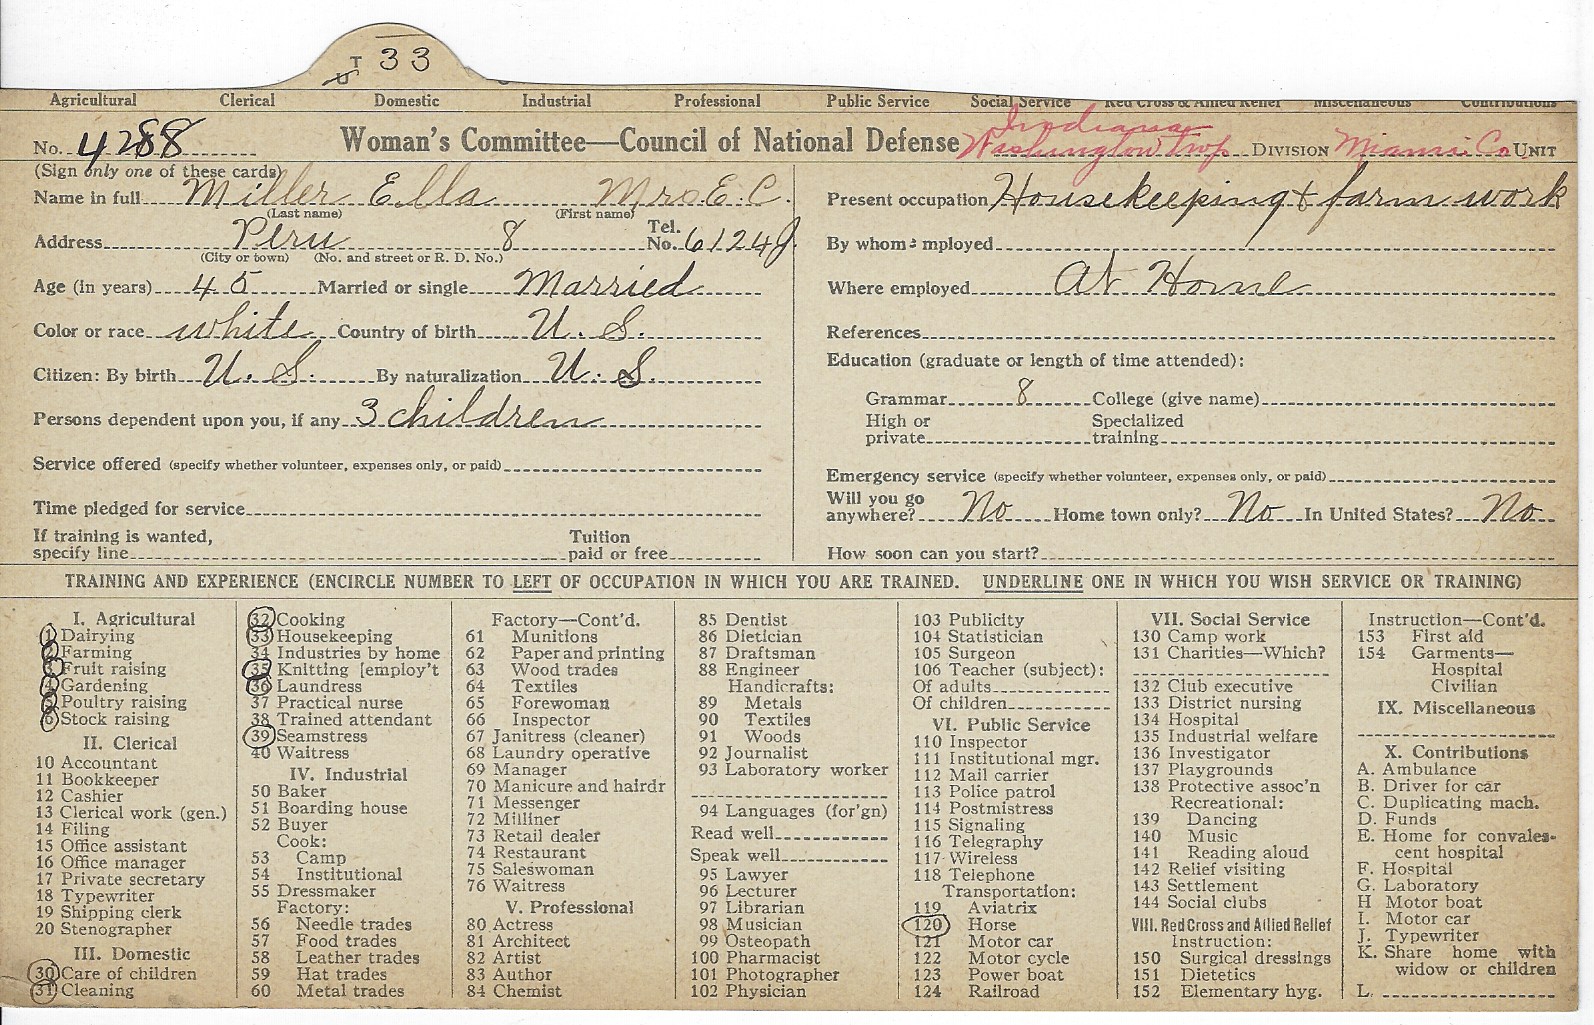 T 33
U
Agricultural Clerical Domestic Industrial Professional Public Service Social Service Red Cross & Allied Relief Miscellaneous Contributions
No. 4288 Woman's Committee—Council of National Defense Indiana Washington Twp DIVISION Miami Co. UNIT
(Sign only one of these cards)
Name in full Miller Ella Mrs E. C.
(Last name) (First name)
Address Peru 8 Tel. No. 6124J
(City or town) (No. and street or R. D. No.)
Age (in years) 45 Married or single Married
Color or race white Country of birth U. S.
Citizen: By birth U. S. By naturalization U. S.
Persons dependent upon you, if any 3 children
Service offered (specify whether volunteer, expenses only, or paid)
Time pledged for service
If training is wanted, specify line Tuition paid or free
Present occupation Housekeeping & farm work
By whom employed
Where employed At Home
References
Education (graduate or length of time attended):
Grammar 8 College (give name)
High or private Specialized training
Emergency service (specify whether volunteer, expenses only, or paid)
Will you go anywhere? No Home town only? No In United States? No
How soon can you start?
TRAINING AND EXPERIENCE (ENCIRCLE NUMBER TO LEFT OF OCCUPATION IN WHICH YOU ARE TRAINED. UNDERLINE ONE IN WHICH YOU WISH SERVICE OR TRAINING)
I. Agricultural
1 Dairying
2 Farming
3 Fruit raising
4 Gardening
5 Poultry raising
6 Stock raising
II. Clerical
10 Accountant
11 Bookkeeper
12 Cashier
13 Clerical work (gen.)
14 Filing
15 Office assistant
16 Office manager
17 Private secretary
18 Typewriter
19 Shipping clerk
20 Stenographer
III. Domestic
30 Care of children
31 Cleaning
32 Cooking
33 Housekeeping
34 Industries by home
35 Knitting [employ't
36 Laundress
37 Practical nurse
38 Trained attendant
39 Seamstress
40 Waitress
IV. Industrial
50 Baker
51 Boarding house
52 Buyer
Cook:
53 Camp
54 Institutional
55 Dressmaker
Factory:
56 Needle trades
57 Food trades
58 Leather trades
59 Hat trades
60 Metal trades
Factory—Cont'd.
61 Munitions
62 Paper and printing
63 Wood trades
64 Textiles
65 Forewoman
66 Inspector
67 Janitress (cleaner)
68 Laundry operative
69 Manager
70 Manicure and hairdr
71 Messenger
72 Milliner
73 Retail dealer
74 Restaurant
75 Saleswoman
76 Waitress
V. Professional
80 Actress
81 Architect
82 Artist
83 Author
84 Chemist
85 Dentist
86 Dietician
87 Draftsman
88 Engineer
Handicrafts:
89 Metals
90 Textiles
91 Woods
92 Journalist
93 Laboratory worker
94 Languages (for'gn)
Read well
Speak well
95 Lawyer
96 Lecturer
97 Librarian
98 Musician
99 Osteopath
100 Pharmacist
101 Photographer
102 Physician
103 Publicity
104 Statistician
105 Surgeon
106 Teacher (subject):
Of adults
Of children
VI. Public Service
110 Inspector
111 Institutional mgr.
112 Mail carrier
113 Police patrol
114 Postmistress
115 Signaling
116 Telegraphy
117 Wireless
118 Telephone
Transportation:
119 Aviatrix
120 Horse
121 Motor car
122 Motor cycle
123 Power boat
124 Railroad
VII. Social Service
130 Camp work
131 Charities—Which?
132 Club executive
133 District nursing
134 Hospital
135 Industrial welfare
136 Investigator
137 Playgrounds
138 Protective assoc'n
Recreational:
139 Dancing
140 Music
141 Reading aloud
142 Relief visiting
143 Settlement
144 Social clubs
VIII. Red Cross and Allied Relief
Instruction:
150 Surgical dressings
151 Dietetics
152 Elementary hyg.
Instruction—Cont'd.
153 First aid
154 Garments—
Hospital
Civilian
IX. Miscellaneous
X. Contributions
A. Ambulance
B. Driver for car
C. Duplicating mach.
D. Funds
E. Home for convales-
cent hospital
F. Hospital
G. Laboratory
H Motor boat
I. Motor car
J. Typewriter
K. Share home with
widow or children
L.